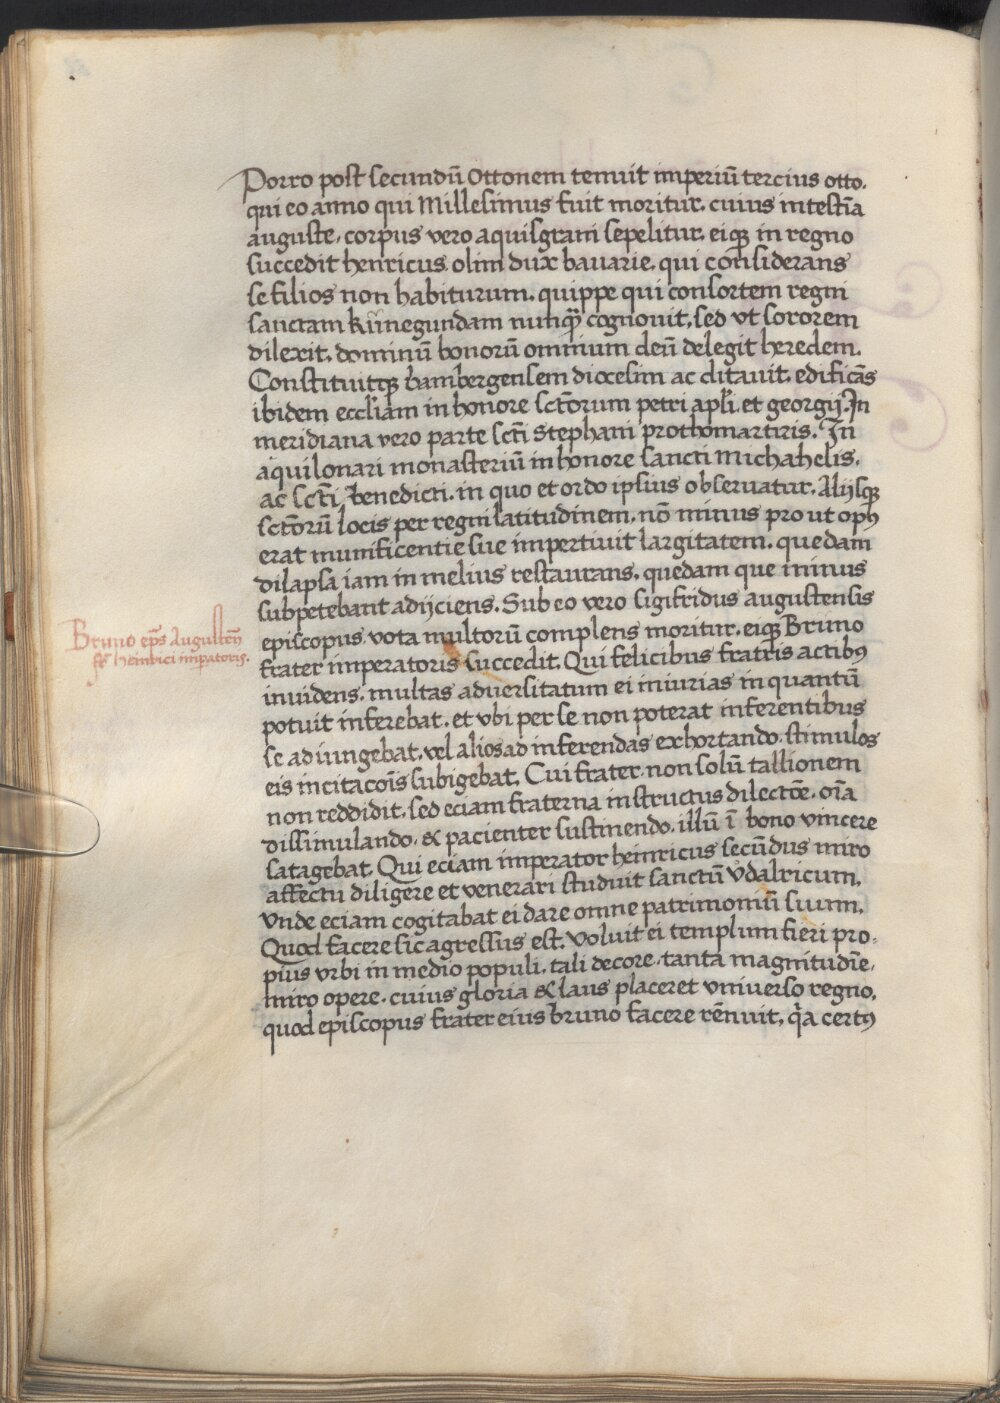 Porro post secundū Ottonem tenuit imperiū tercius otto.
qui eo anno qui Millesimus fuit moritur. cuius intestīa
auguste, corpus vero aquisgrani sepelitur. eiqꝫ in regno
succedit henricus olim dux bavarie. qui considerans
se filios non habiturum. quippe qui consortem regni
sanctam kunegundam nunqꝫ cognouit, sed vt sororem
dilexit. dominū bonorū omnium deū delegit heredem.
Constituitqꝫ bambergensem diocesim ac ditauit. edificās
ibidem eccl̄iam in honore sctōrum petri apl̄i. et georgij. In
meridiana vero parte sctī Stephani prothomartiris. In
aquilonari monasteriū in honore sancti Michahelis.
ac sctī benedicti. in quo et ordo ipsius obseruatur. Alijsqꝫ
sctōrū locis per regni latitudinem. nō minus pro ut opꝰ
erat munificentie sue impertiuit largitatem. quedam
dilapsa iam in melius restaurans. quedam que minus
subpetebant adijciens. Sub eo vero sigifridus augustensis
episcopus vota multorū complens moritur. eiqꝫ Bruno
frater imperatoris succedit. Qui felicibus fratris actibꝰ
inuidens. multas aduersitatum ei iniurias in quantū
potuit inferebat. et vbi per se non poterat inferentibus
se adiungebat. vel alios ad inferendas exhortando. stimulos
eis incitacōis subigebat. Cui frater. non solū tallionem
non reddidit. sed eciam fraterna instructus dilectōe. oīa
dissimulando. & pacienter sustinendo. illū ī bono vincere
satagebat. Qui eciam imperator heinricus secūdus miro
affectu diligere et venerari studuit sanctū vdalricum.
vnde eciam cogitabat ei dare omne patrimoniū suum.
Quod facere sic agressus est. voluit ei templum fieri pro-
pius vrbi in medio populi. tali decore. tanta magnitudīe.
miro opere. cuius gloria & laus placeret vniuerso regno.
quod episcopus frater eius bruno facere rēnuit. qa certꝰ
Bruno ep̄s Augustēn
fr̄ heinrici impatoris.